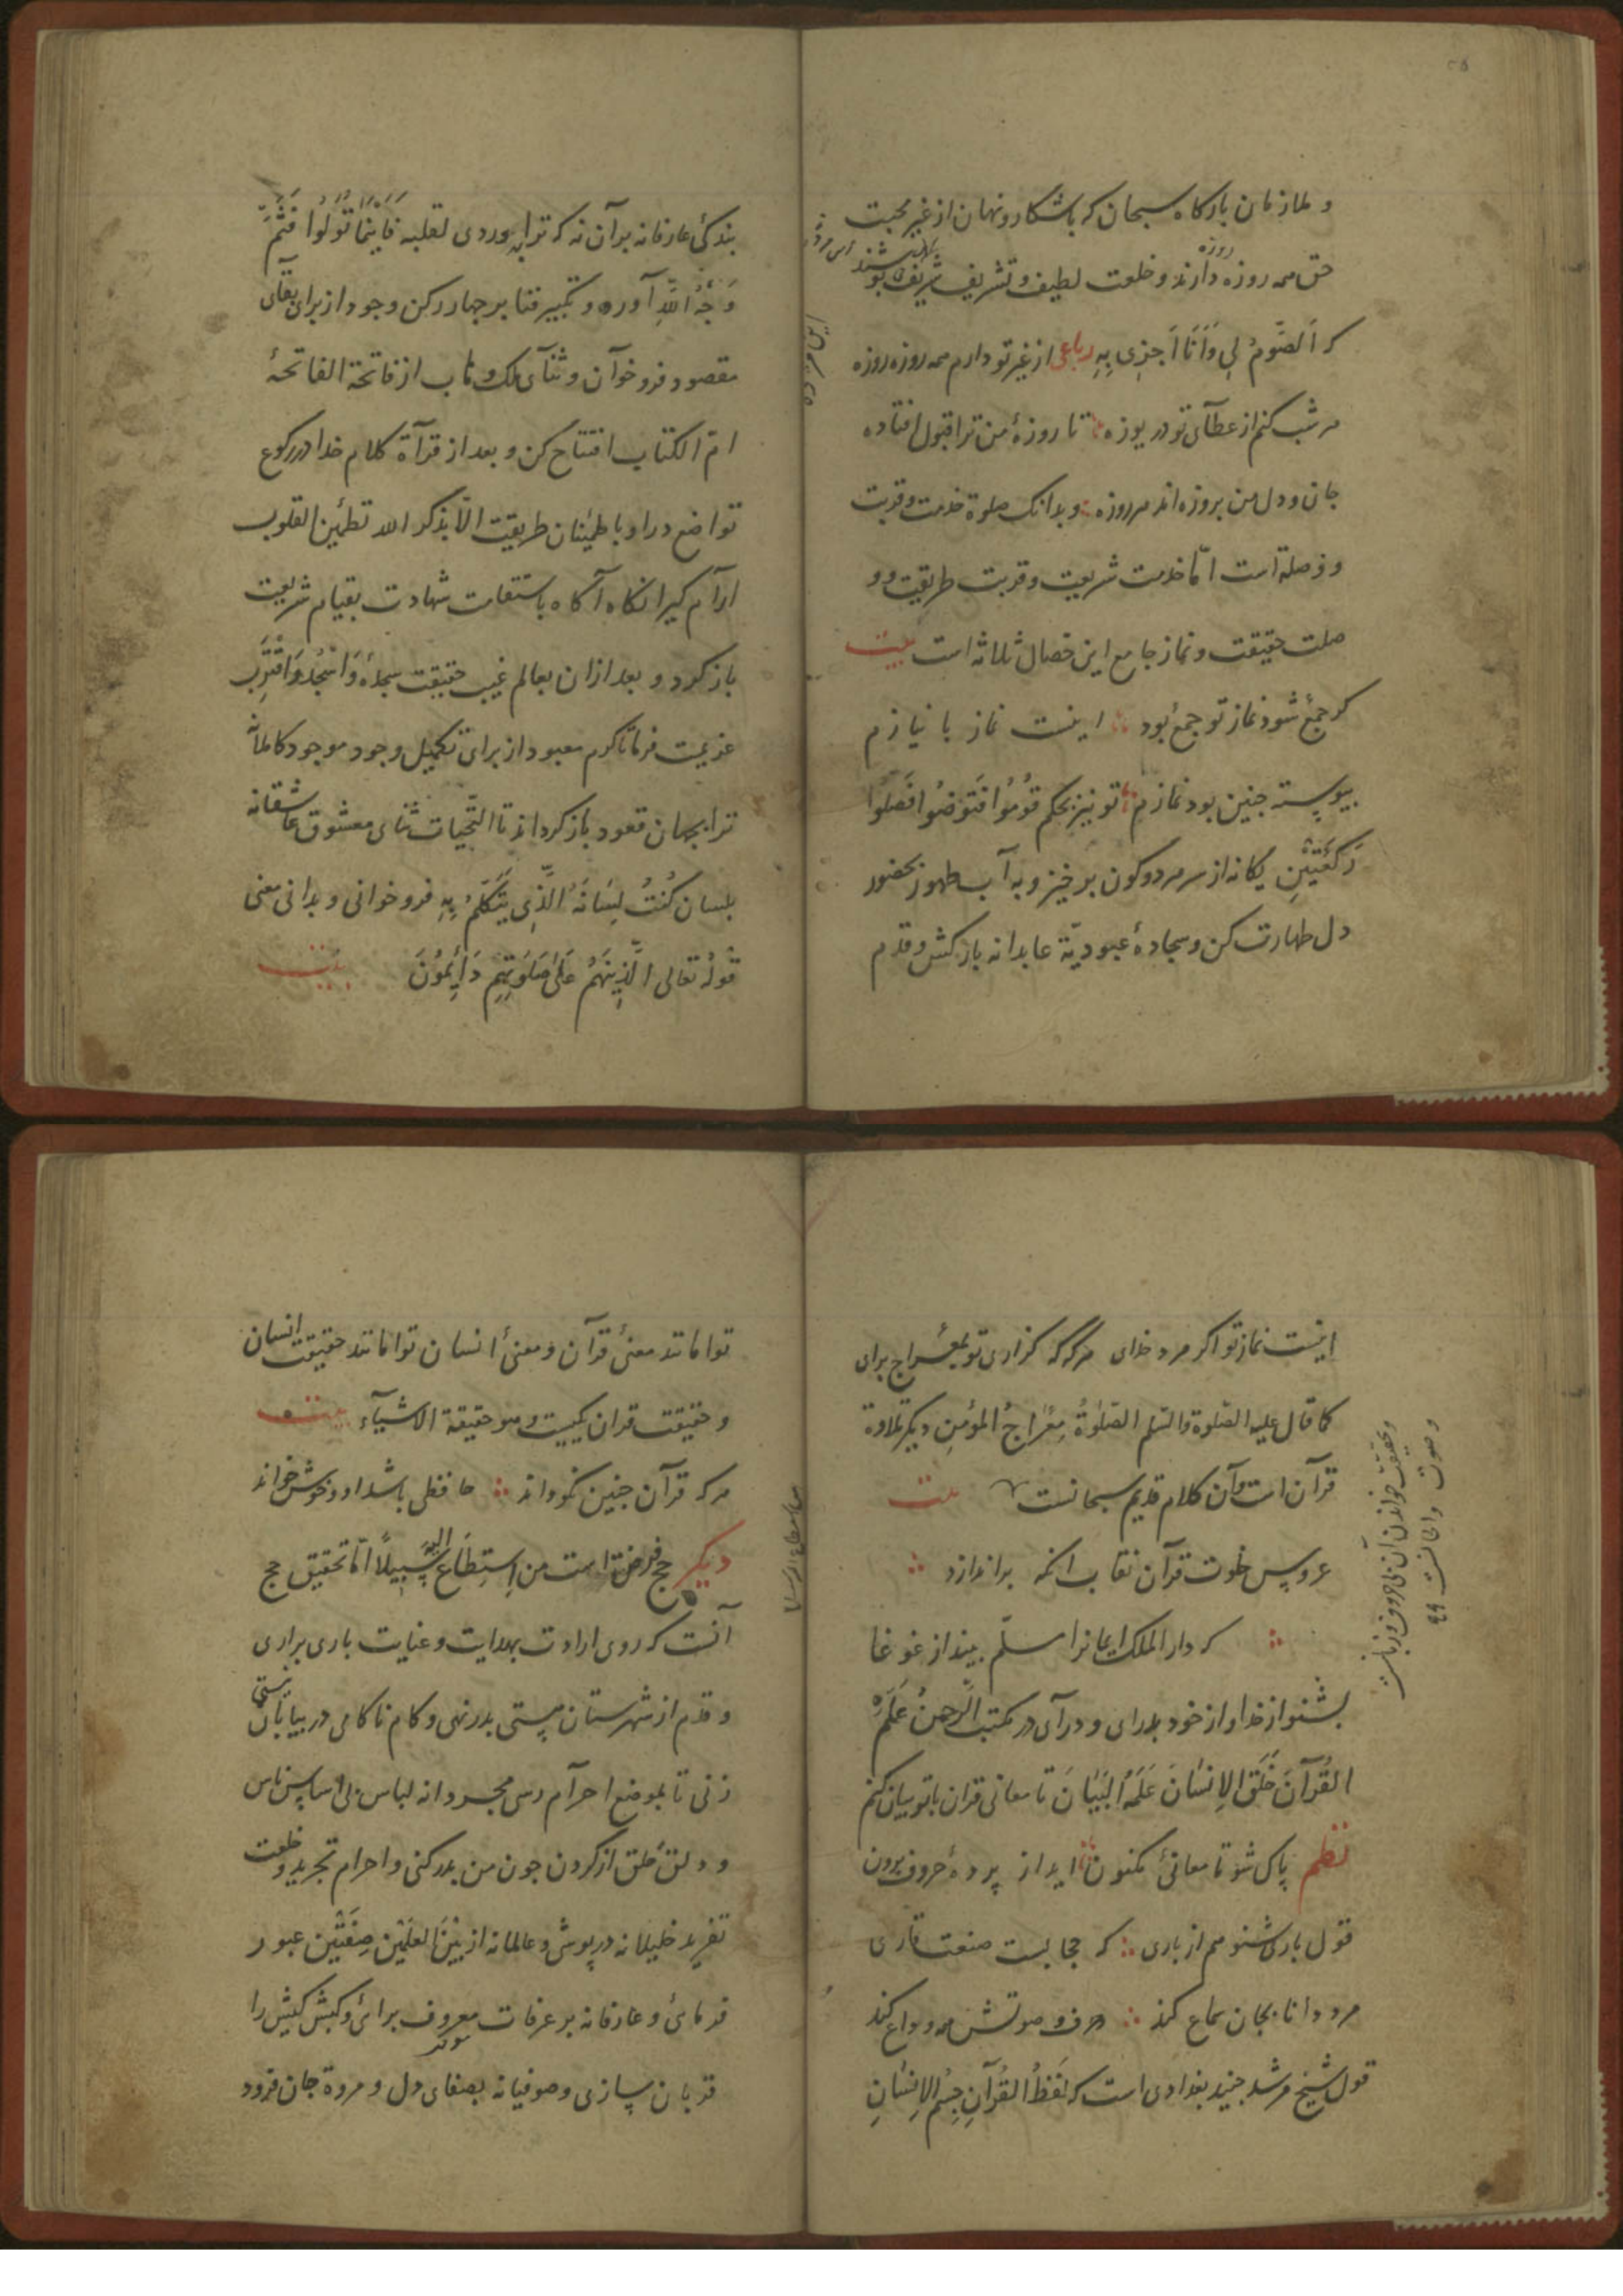 و ملازمان بارکاه سبحان که باشکار و نهان از غیر محبت
حق همه روزه روزه دارند و خلعت لطیف و تشریف شریف پوشند
که اَلصَّومُ لِی وَاَنَا اَجزِی بِهِ رباعی از غیر تو دارم همه روزه روزه
هر شب کنم از عطآی تو دریوزه تا روزهٔ من ترا قبول افتاده
جان و دل من بروزه اند هر روزه و بدانک صلوة خدمت و قربت
و وصلة است امّا خدمت شریعت و قربت طریقت و و
صلت حقیقت و نماز جامع این خصال ثلاثه است بیت
کر جمع شود نماز تو جمع بود اینست نماز با نیازم
پیوسته جنین بود نمازم تو نیز بحکم قُومُوا فَتَوَضُوا فَصَلُوا
رَکعَتَیْنِ یکانه از سر هر دو کون برخیز و به آب طهور بحضور
دل طهارت کن و سجادهٔ عبودیّة عابدانه باز کش و قدم
بندکیٔ عارفانه بر آن نه که ترا بدوردی لقلبه فَاَیْنَمَا تُوَلُّوا فَثَمَّ
وَجْهُ اللّٰهِ آوره و تکبیر فنا بر جهار رکن وجود از برای بقآی
مقصود فرو خوآن و ثنآی ملک وهاب از فاتحة الفاتحهٔ
امّ الکتاب افتتاح کن و بعد از قرآة کلام خدا در رکوع
تواضع درا و باطمٔینان طریقت الّا بذکر الله تطمٔین القلوب
ارآم کیر انکاه آکاه باستقامت شهادت بقیام شریعت
باز کرد و بعد از ان بعالم غیب حقیقت سجدهٔ وَاسْجُدْ وَاقْتَرِب
عزیمت فرما تا کرم معبود از برای تکمیل وجود موجود کاملانه
ترا بجهان قعود باز کرداند تا التّحیات ثنای معشوق عاشقانه
بلسان کُنْتُ لِسَانَهُ الَّذِی یَتَکَلَّمُ بِهِ فرو خوانی و بدانی معنی
قولهُ تعالی الَّذِینَهُم عَلٰی صَلَوتِهِم دَائِمُونَ بیت
اینست نماز تو اکر مرد خدای هرکه که کزاری تو بمعراج برای
کما قال علیه الصّلوة والسّلم الصّلوٰةُ مِعْرَاجُ المؤمِنِ دیکر تلاوة
قرآن است و آن کلام قدیم سبحانست بیت
عروس خلوت قرآن نقاب انکه براندازد
که دار الملک ایمانرا مسلّم بیند از غوغا
بشنو از خدا و از خود بدرای و درآی در مکتب الرَّحمنُ عَلَّمَ
القُرآنَ خَلَقَ الاِنسَانَ عَلَّمَهُ البَیَانَ تا معانی قران با تو بیان کنم
نظم پاک شو تا معانیٔ مکنون اید از پردهٔ حروف برون
قول باری شنو هم از باری که حجابست صنعت قاری
مرد دانا بجان سماع کند حرف و صوتش همه وداع کند
قول شیخ مرشد جنید بغدادی است که لَفظُ القُرآنِ جِسْمُ الاِنسَانِ
و حقیقت خواندن آن بی حروف و زبانست
و صوت و الحانست
توامانند معنیٔ قرآن و معنیٔ انسان توامانند حقیقت انسان
و حقیقت قران یکیست و هو حقیقة الاشیآء بیت
هر که قرآن جنین نکو داند حافظی باشد او و خوش خواند
دیکر حج فرض است من اِستِطَاع الیه سَبِیلاً امّا تحقیق حج
آنست که روی ارادت بهدایت و عنایت باری براری
و قدم از شهرستان هستی بدر نهی و کام ناکامی در بیابان نیستی
زنی تا بموضع احرآم رسی مجردانه لباس بی اساس ناس
و دلق خلق از کردن جون من بدر کنی و احرام تجرید و خلعت
تفرید خلیلانه در پوشی و عالمانه از بَیْنَ العَلَمَیْن صِفَتَین عبور
فرمائی و عارفانه بر عرفات معروف برائی و کبش کیش را
قربان سازی و صوفیانه بصفای دل و مروة جان فرود